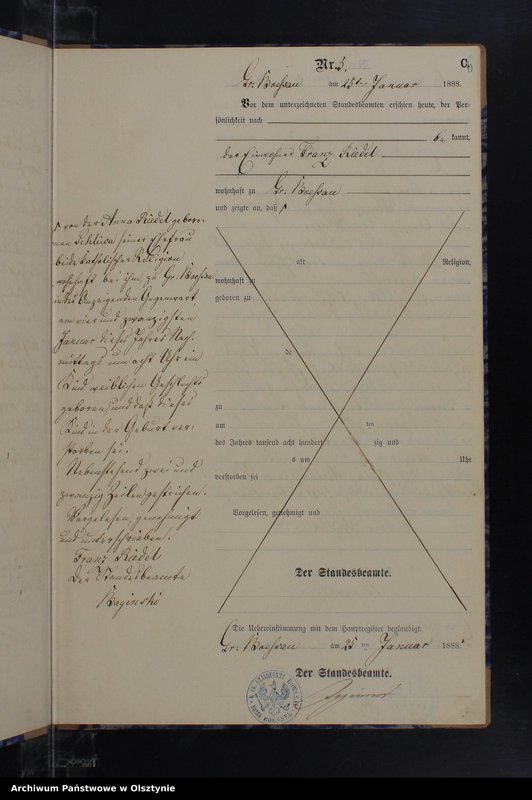 Nr. 5.
C.
Gr: Boessau am 25ten Januar 1888.
Vor dem unterzeichneten Standesbeamten erschien heute, der Per-
sönlichkeit nach
be kannt,
der Einwohner Franz Riedel
wohnhaft zu Gr: Boessau
und zeigte an, daß
von der Anna Riedel gebore-
nen Schliwa seiner Ehefrau
beide katholischer Religion
wohnhaft bei ihm zu Gr: Boessau
in des Anzeigenden Gegenwart
am vier und zwanzigsten
Januar dieses Jahres Nach-
mittags um acht Uhr ein
Kind weiblichen Geschlechts
geboren und daß dieses
Kind in der Geburt ver-
storben sei.
Nebenstehend zwei und
zwanzig Zeilen gestrichen.
Vorgelesen, genehmigt
und unterschrieben.
Franz Riedel
Der Standesbeamte
Baginski
alt Religion,
wohnhaft zu
geboren zu
de
zu
am ten
des Jahres tausend acht hundert zig und
s um Uhr
verstorben sei
Vorgelesen, genehmigt und
Der Standesbeamte.
Die Uebereinstimmung mit dem Hauptregister beglaubigt.
Gr: Boessau am 25 ten Januar 1888.
Der Standesbeamte.
Archiwum Państwowe w Olsztynie